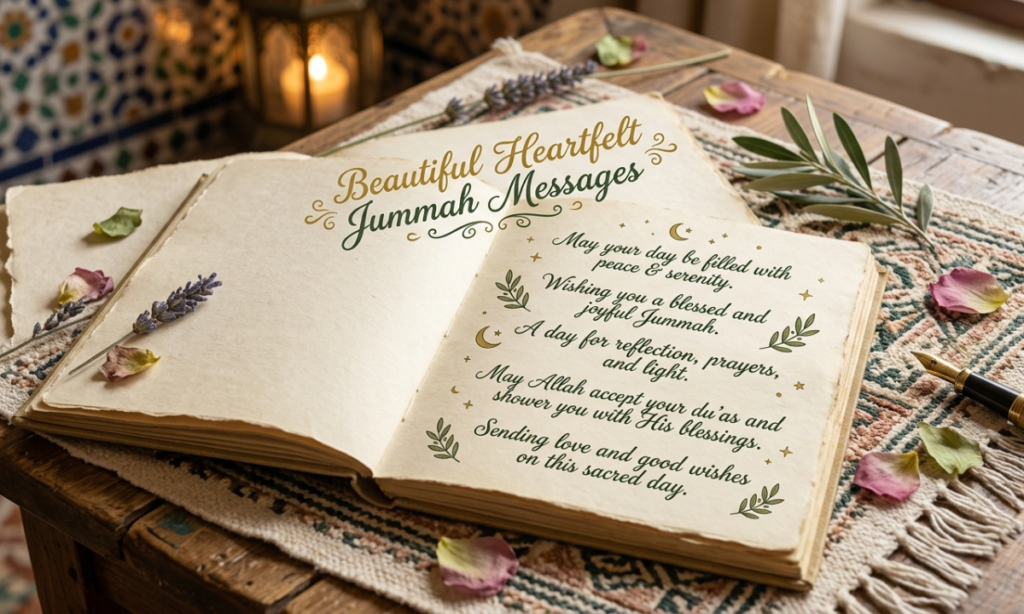 Beautiful Heartfelt
Jummah Messages
May your day be filled with
peace & serenity.
Wishing you a blessed and
joyful Jummah.
A day for reflection, prayers,
and light.
May Allah accept your du'as and
shower you with His blessings.
Sending love and good wishes
on this sacred day.